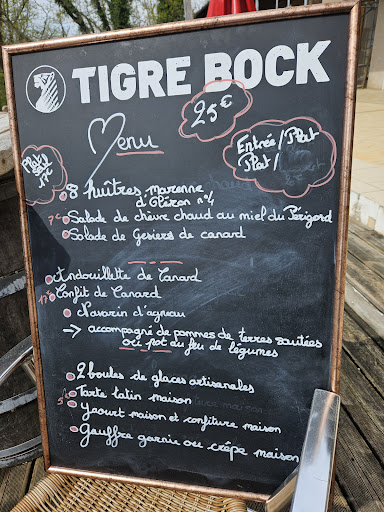 TIGRE BOCK
Menu
25€
Entrée/Plat
Plat/
Plat
17€
8 huîtres marenne
d'Oléron n°4
7€ Salade de chèvre chaud au miel du Périgord
Salade de Gesiers de canard
Andouillette de Canard
17€ Confit de Canard
Navarin d'agneau
→ accompagné de pommes de terres sautées
ou pot du feu de légumes
2 boules de glaces artisanales
5€ Tarte tatin maison
Yaourt maison et confiture maison
Gauffre garnie ou crêpe maison